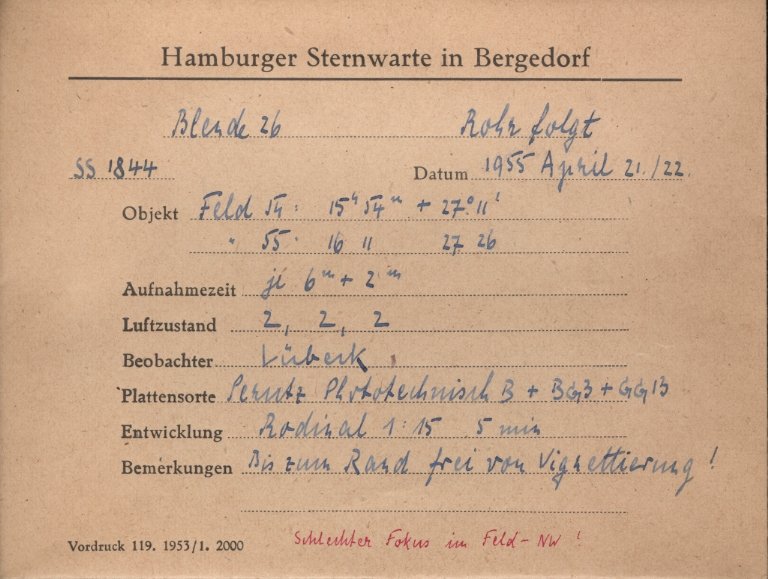 Hamburger Sternwarte in Bergedorf
Blende 26 Rohr folgt
SS 1844 Datum 1955 April 21./22.
Objekt Feld 54: 15h 54m + 27° 11'
" 55: 16 11 27 26
Aufnahmezeit je 6m + 2m
Luftzustand 2, 2, 2
Beobachter Lübeck
Plattensorte Perutz Phototechnisch B + BG3 + GG13
Entwicklung Rodinal 1:15 5 min
Bemerkungen Bis zum Rand frei von Vignettierung!
Vordruck 119. 1953/1. 2000 Schlechter Fokus im Feld-NW!